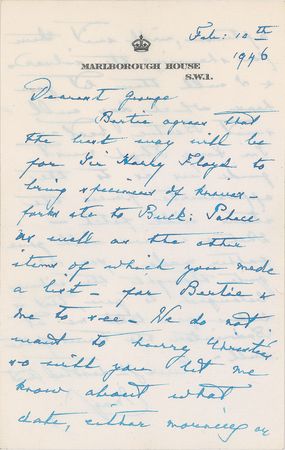 Feb: 10th
1946
MARLBOROUGH HOUSE
S.W.1.
Dearest George
Bertie agrees that
the best way will be
for Sir Harry Floyd to
bring specimens of knives -
forks etc to Buck: Palace
as well as the other
items of which you made
a list - for Bertie &
me to see - We do not
want to hurry
so will you let me
know about what
date, either morning or